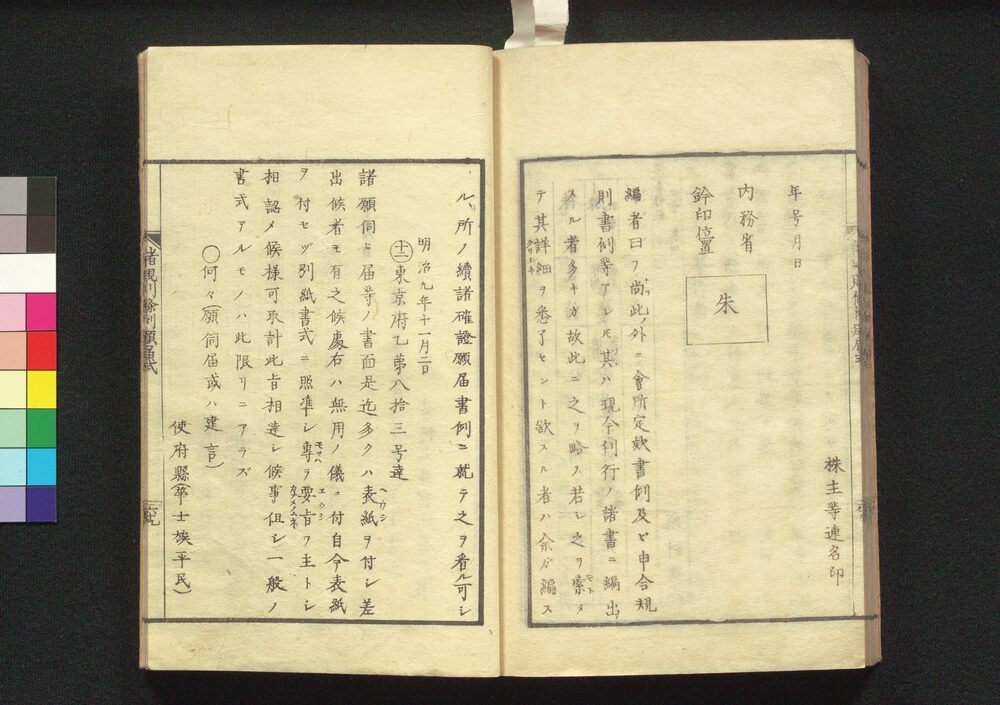 年号月日
株主等連名印
内務省
鈐印位置
朱
編者曰フ尚此外ニ會所定欵書例及ヒ申合規
則書例等アレ𪜈其ハ現今刊行ノ諸書ニ編出
スル者多キガ故此ニ之ヲ略ス若シ之ヲ索メ
テ其詳細ヲ悉了セント欲スル者ハ余ガ編ス
ル所ノ續諸確證願届書例ニ就テ之ヲ看ル可シ
明治九年十一月二日
十二東京府乙第八拾三号達
諸願伺ヒ届等ノ書面是迄多クハ表紙ヲ付シ差
出候者モ有之候處右ハ無用ノ儀ニ付自今表紙
ヲ付セヅ別紙書式ニ照準シ專ヲ要旨ヲ主トシ
相認メ候様可取計此旨相達シ候事但シ一般ノ
書式アルモノハ此限リニアラズ
〇何々(願伺届或ハ建言)
使府縣(華士族平民)